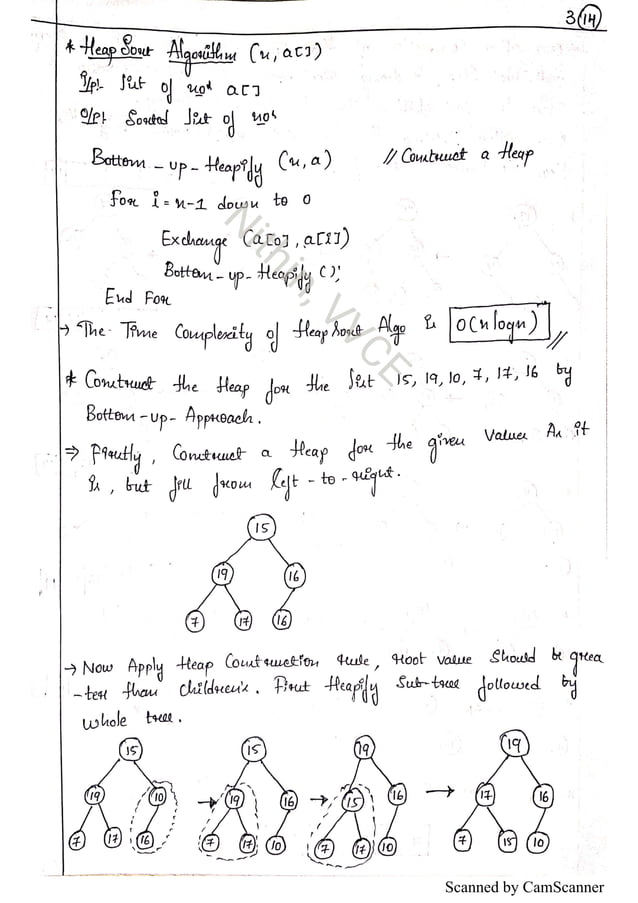 3 14
* Heap Sort Algorithm (n, a[])
I/p:- list of nos a[]
O/p:- Sorted list of nos
Bottom-up-Heapify (n, a) // Construct a Heap
For i = n-1 down to 0
Exchange (a[0], a[i])
Bottom-up-Heapify ();
End For
→ The Time Complexity of Heap Sort Algo is O(n logn) //
* Construct the Heap for the list 15, 19, 10, 7, 17, 16 by
Bottom-up-Approach.
⇒ Firstly, Construct a Heap for the given values As it
is, but fill from left-to-right.
15
19 16
7 17 16
→ Now Apply Heap Construction rule, root value should be grea
-ter than children's. First Heapify Sub-tree followed by
whole tree.
15 → 15 → 19 → 19
19 10 19 16 15 16 17 16
7 17 16 7 17 10 7 17 10 7 15 10
Nithin, VVCE
Scanned by CamScanner